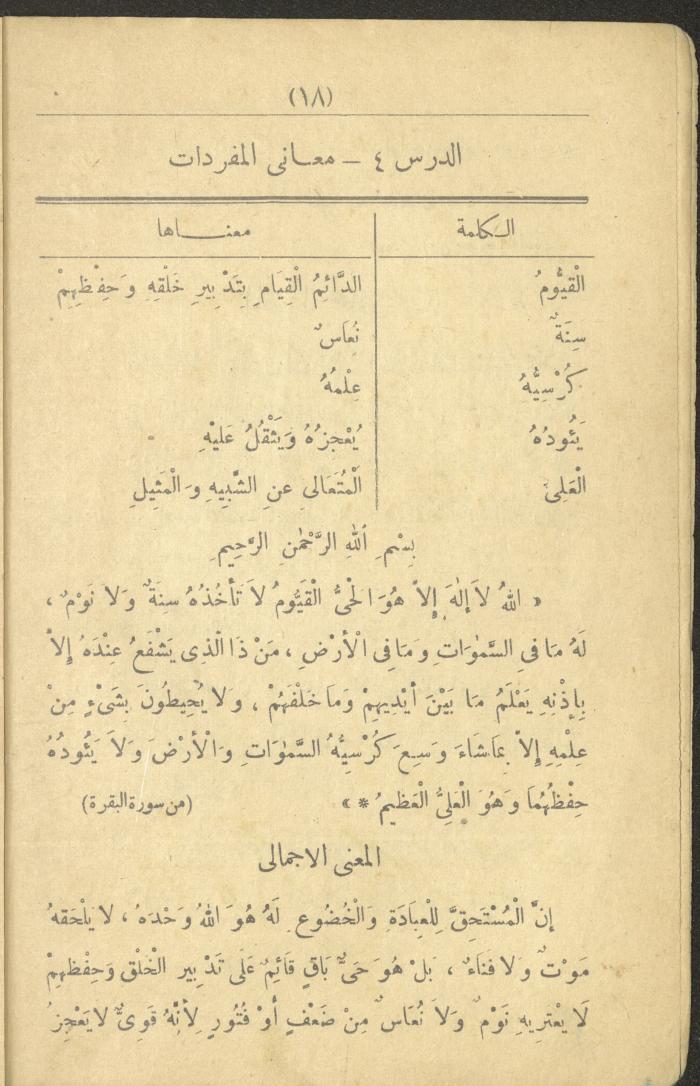 (١٨)
الدرس ٤ – معانى المفردات
الكلمة معناها
الْقَيُّومُ الدَّائِمُ الْقِيَامِ بِتَدْبِيرِ خَلْقِهِ وَحِفْظِهِمْ
سِنَةٌ نُعَاسٌ
كُرْسِيُّهُ عِلْمُهُ
يَئُودُهُ يُعْجِزُهُ وَيَثْقُلُ عَلَيْهِ
الْعَلِىُّ الْمُتَعَالِى عَنِ الشَّبِيهِ وَالْمَثِيلِ
بِسْمِ اللهِ الرَّحْمٰنِ الرَّحِيمِ
« اللهُ لاَ إِلٰهَ إِلاَّ هُوَ الْحَىُّ الْقَيُّومُ لاَ تَأْخُذُهُ سِنَةٌ وَلاَ نَوْمٌ ،
لَهُ مَا فِى السَّمٰوَاتِ وَمَا فِى الْأَرْضِ ، مَنْ ذَا الَّذِى يَشْفَعُ عِنْدَهُ إِلاَّ
بِإِذْنِهِ يَعْلَمُ مَا بَيْنَ أَيْدِيهِمْ وَمَا خَلْفَهُمْ ، وَلاَ يُحِيطُونَ بِشَىْءٍ مِنْ
عِلْمِهِ إِلاَّ بِمَا شَاءَ وَسِعَ كُرْسِيُّهُ السَّمٰوَاتِ وَالْأَرْضَ وَلاَ يَئُودُهُ
حِفْظُهُمَا وَهُوَ الْعَلِىُّ الْعَظِيمُ * » (من سورة البقرة)
المعنى الاجمالى
إِنَّ الْمُسْتَحِقَّ لِلْعِبَادَةِ وَالْخُضُوعِ لَهُ هُوَ اللهُ وَحْدَهُ ، لاَ يَلْحَقهُ
مَوْتٌ وَلاَ فَنَاءٌ ، بَلْ هُوَ حَىٌّ بَاقٍ قَائِمٌ عَلَى تَدْبِيرِ الْخَلْقِ وَحِفْظِهِمْ
لَا يَعْتَرِيهِ نَوْمٌ وَلاَ نُعَاسٌ مِنْ ضَعْفٍ أَوْ فُتُورٍ لِأَنَّهُ قَوِىٌّ لاَ يَعْجِزُ